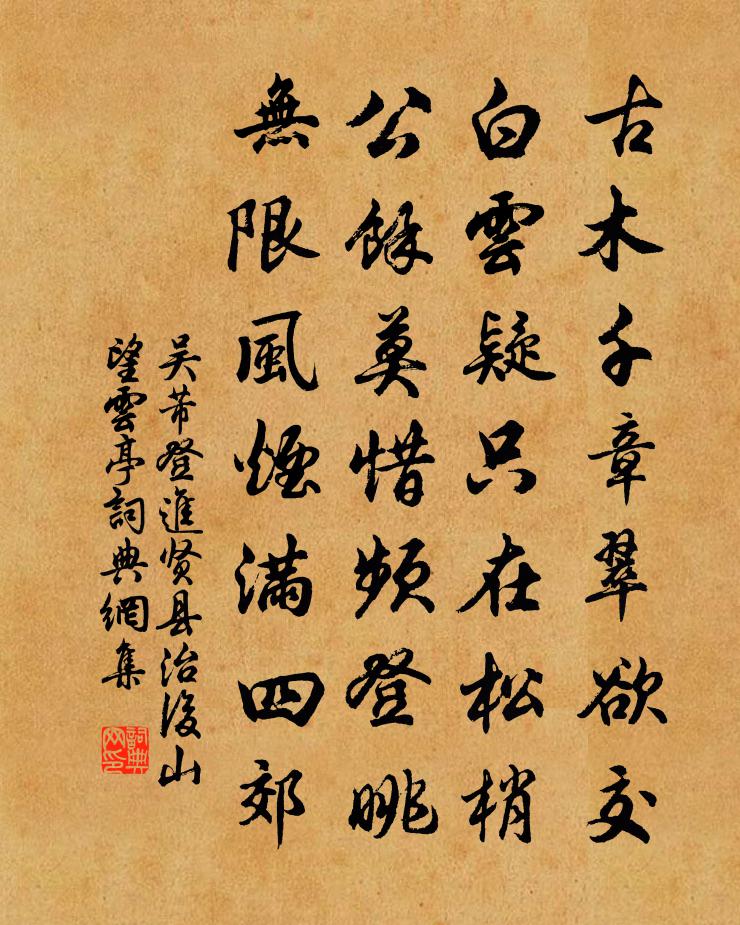 古木千章翠欲交
白雲疑只在松梢
公餘莫惜頻登眺
無限風煙滿四郊
吴芾登進贤县治後山
望雲亭詞典網集
詞典网印